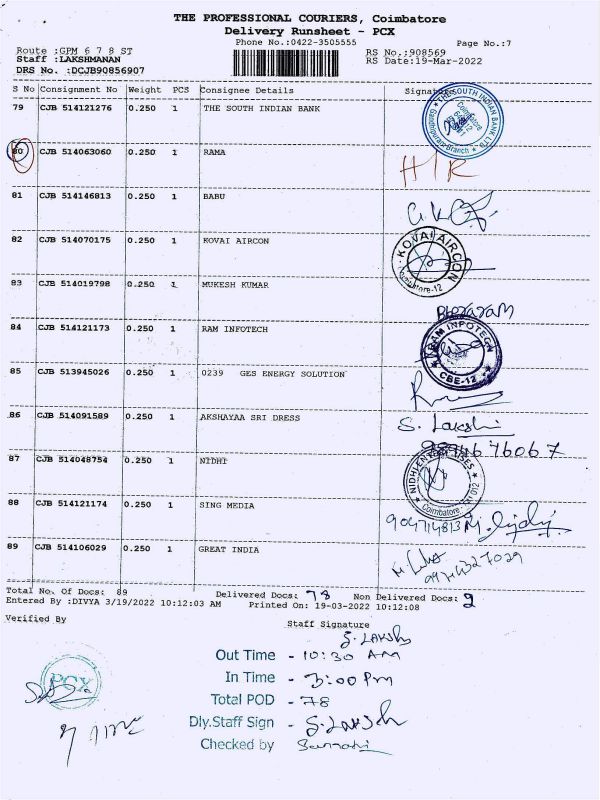 THE PROFESSIONAL COURIERS, Coimbatore
Delivery Runsheet - PCX
Phone No.:0422-3505555
Page No.:7
Route :GPM 6 7 8 ST
RS No.:908569
Staff :LAKSHMANAN
RS Date:19-Mar-2022
DRS No. :DCJB90856907
S No Consignment No Weight PCS Consignee Details Signature
79 CJB 514121276 0.250 1 THE SOUTH INDIAN BANK
80 CJB 514063060 0.250 1 RAMA
81 CJB 514146813 0.250 1 BABU
82 CJB 514070175 0.250 1 KOVAI AIRCON
KOVAI AIRCON
Coimbatore-12
83 CJB 514019798 0.250 1 MUKESH KUMAR
84 CJB 514121173 0.250 1 RAM INFOTECH
RAM INFOTECH
CBE-12
85 CJB 513945026 0.250 1 0239 GES ENERGY SOLUTION
86 CJB 514091589 0.250 1 AKSHAYAA SRI DRESS S. Lakshi
87 CJB 514048754 0.250 1 NIDHI
88 CJB 514121174 0.250 1 SING MEDIA
89 CJB 514106029 0.250 1 GREAT INDIA
Total No. Of Docs: 89 Delivered Docs: 78 Non Delivered Docs: 9
Entered By :DIVYA 3/19/2022 10:12:03 AM Printed On: 19-03-2022 10:12:08
Verified By Staff Signature
S. Laksh
Out Time - 10:30 Am
In Time - 3:00 Pm
Total POD - 78
Dly.Staff Sign - S. Laksh
Checked by
PCX